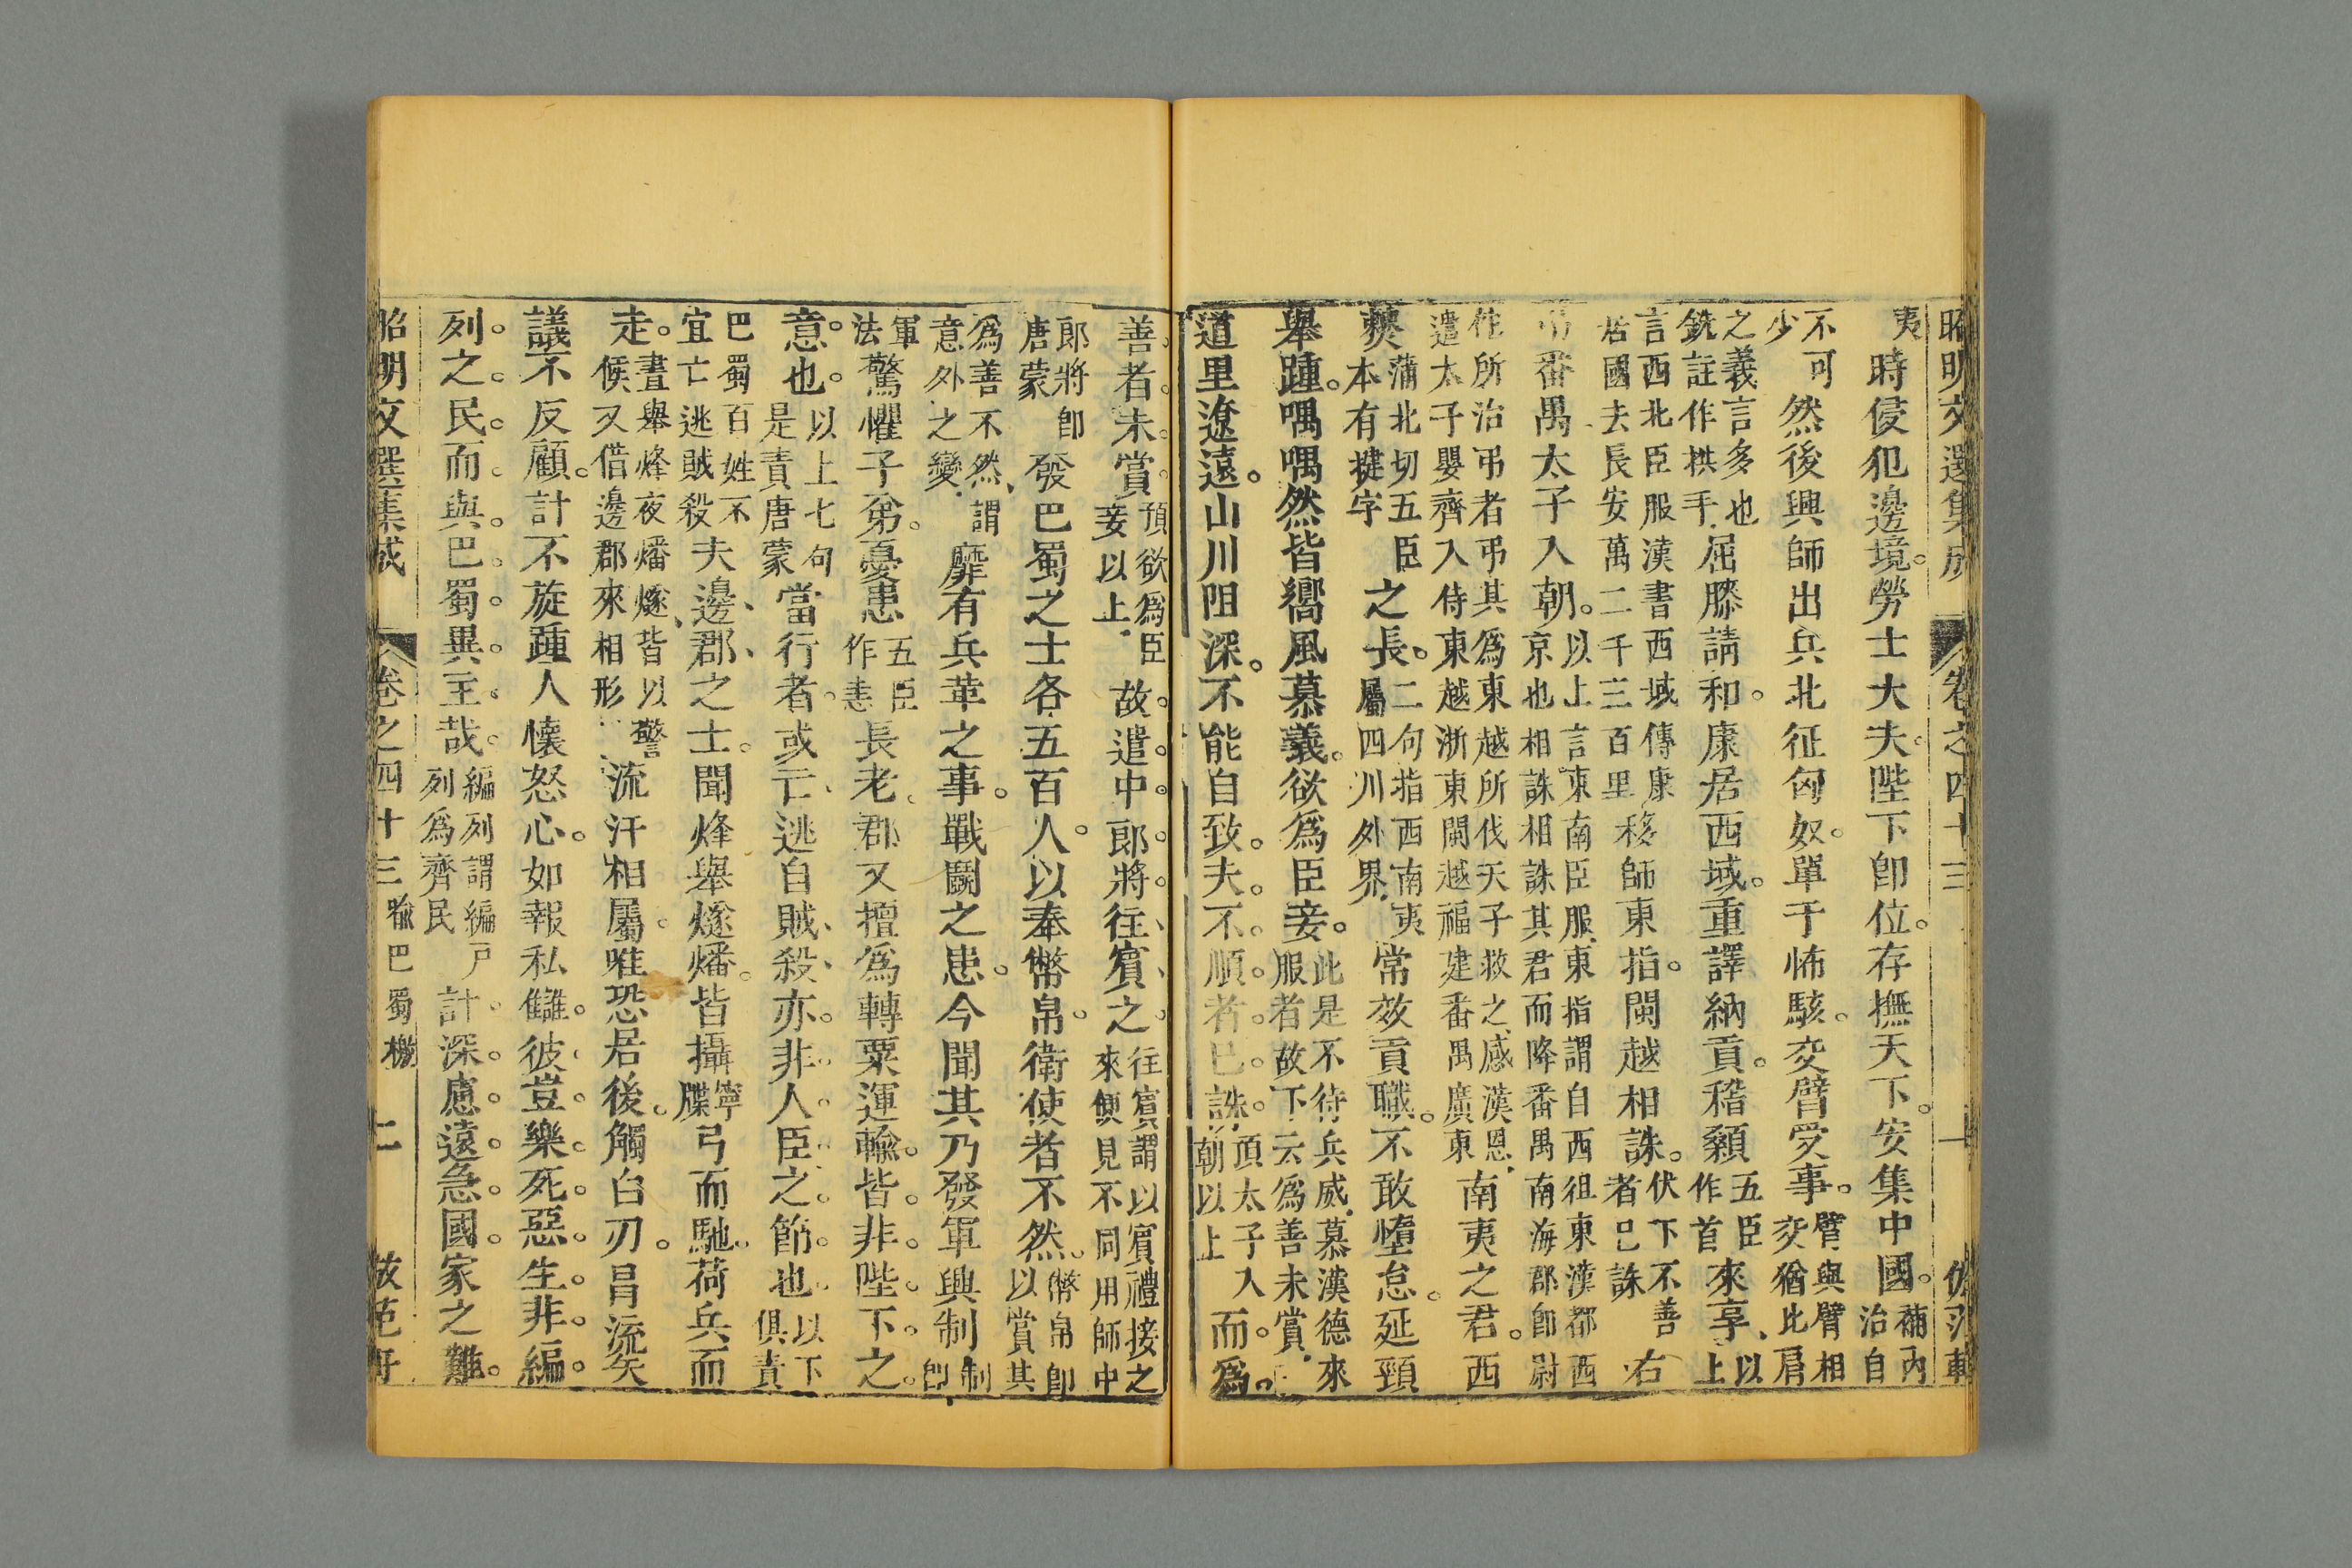 昭明文選集成 卷之四十三
夷 時侵犯邊境勞士大夫陛下卽位存撫天下安集中國 補內治自
不可少 然後興師出兵北征匈奴單于怖駭交臂受事 臂與臂相交猶比肩
之義言多也銑註作拱手 屈膝請和康居西域重譯納貢稽顙 五臣作首 來享 以上
言西北臣服漢書西域傳康居國去長安萬二千三百里 移師東指閩越相誅 伏下不善者已誅 右
弔番禺太子入朝 以上言東南臣服東指謂自西徂東漢都西京也相誅相誅其君而降番禺南海郡卽尉
佗所治弔者弔其爲東越所伐天子救之感漢恩遣太子嬰齊入侍東越浙東閩越福建番禺廣東 南夷之君西
僰 蒲北切五臣本有揵字 之長 二句指西南夷屬四川外界 常效貢職不敢惰怠延頸
舉踵喁喁然皆嚮風慕義欲爲臣妾 此是不待兵威慕漢德來服者故下云爲善未賞
道里遼遠山川阻深不能自致夫不順者已誅 頂太子入朝以上 而爲
善者未賞 預欲爲臣妾以上 故遣中郎將往賓之 往賓謂以賓禮接之來便見不同用師中
郎將卽唐蒙 發巴蜀之士各五百人以奉幣帛衛使者不然 幣帛卽以賞其
爲善不然謂意外之變 靡有兵革之事戰鬭之患今聞其乃發軍興制 制卽
軍法 驚懼子弟憂患 五臣作恚 長老郡又擅爲轉粟運輸皆非陛下之
意也 以上七句是責唐蒙 當行者或亡逃自賊殺亦非人臣之節也 以下俱責
巴蜀百姓不宜亡逃賊殺 夫邊郡之士聞烽舉燧燔皆攝 寧牒 弓而馳荷兵而
走 晝舉烽夜燔燧皆以警候又借邊郡來相形 流汗相屬唯恐居後觸白刃冐流矢
議不反顧計不旋踵人懷怒心如報私讎彼豈樂死惡生非編
列之民而與巴蜀異主哉 編列謂編戸列爲齊民 計深慮遠急國家之難
昭明文選集成 卷之四十三 喩巴蜀檄 二